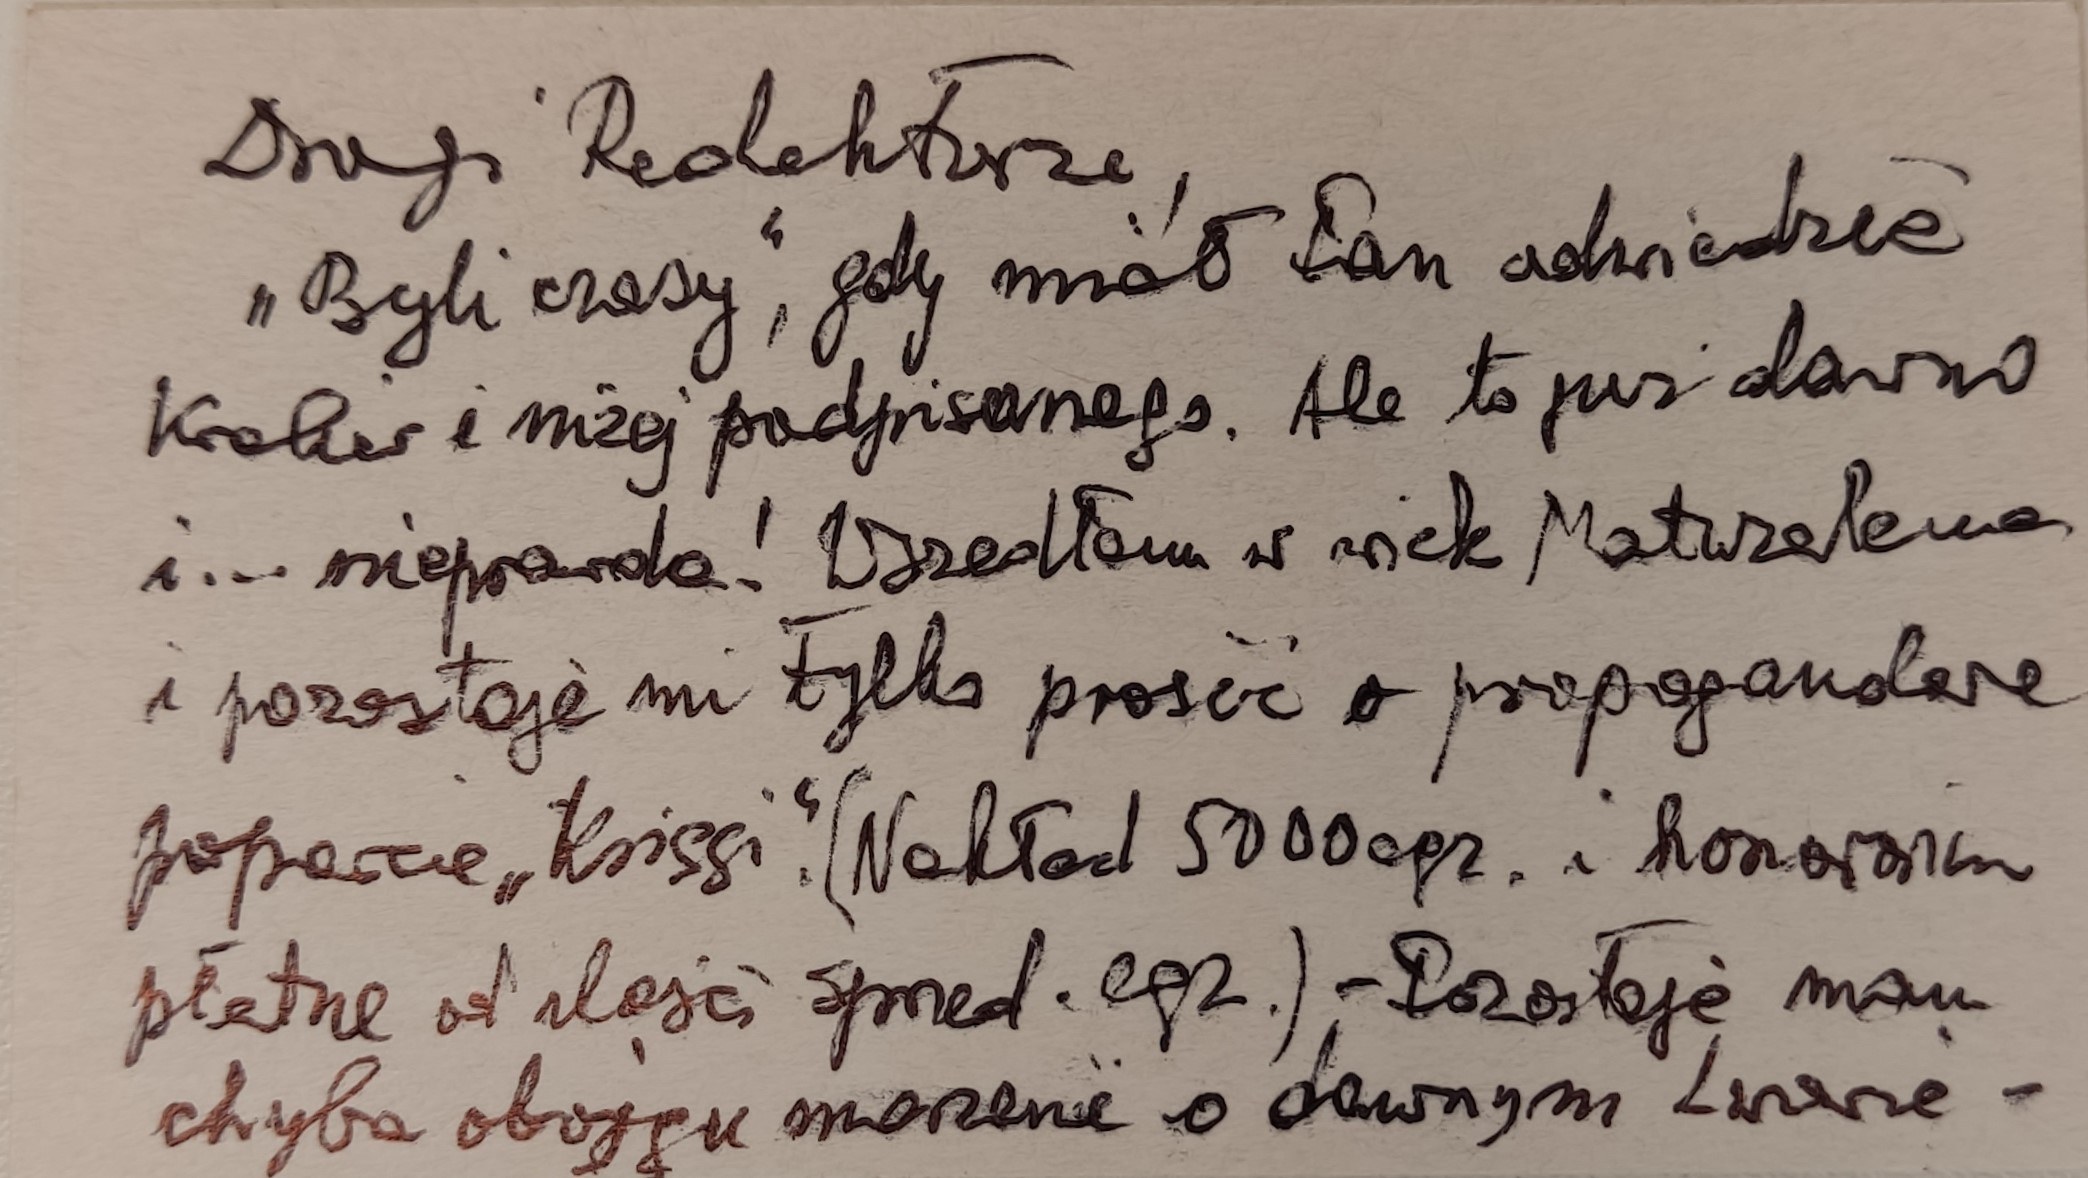 Drogi Redaktorze,
„Byli czasy”, gdy miał Pan odwiedzić
Kraków i niżej podpisanego. Ale to już dawno
i... nieprawda! Wszedłem w wiek Matuzalema
i pozostaje mi tylko prosić o propogandowe
poparcie „Księgi”. (Nakład 5000 egz. i honorarium
płatne od ilości sprzed. egz.) - Pozostaje nam
chyba obojgu marzenie o dawnym Lwowie -